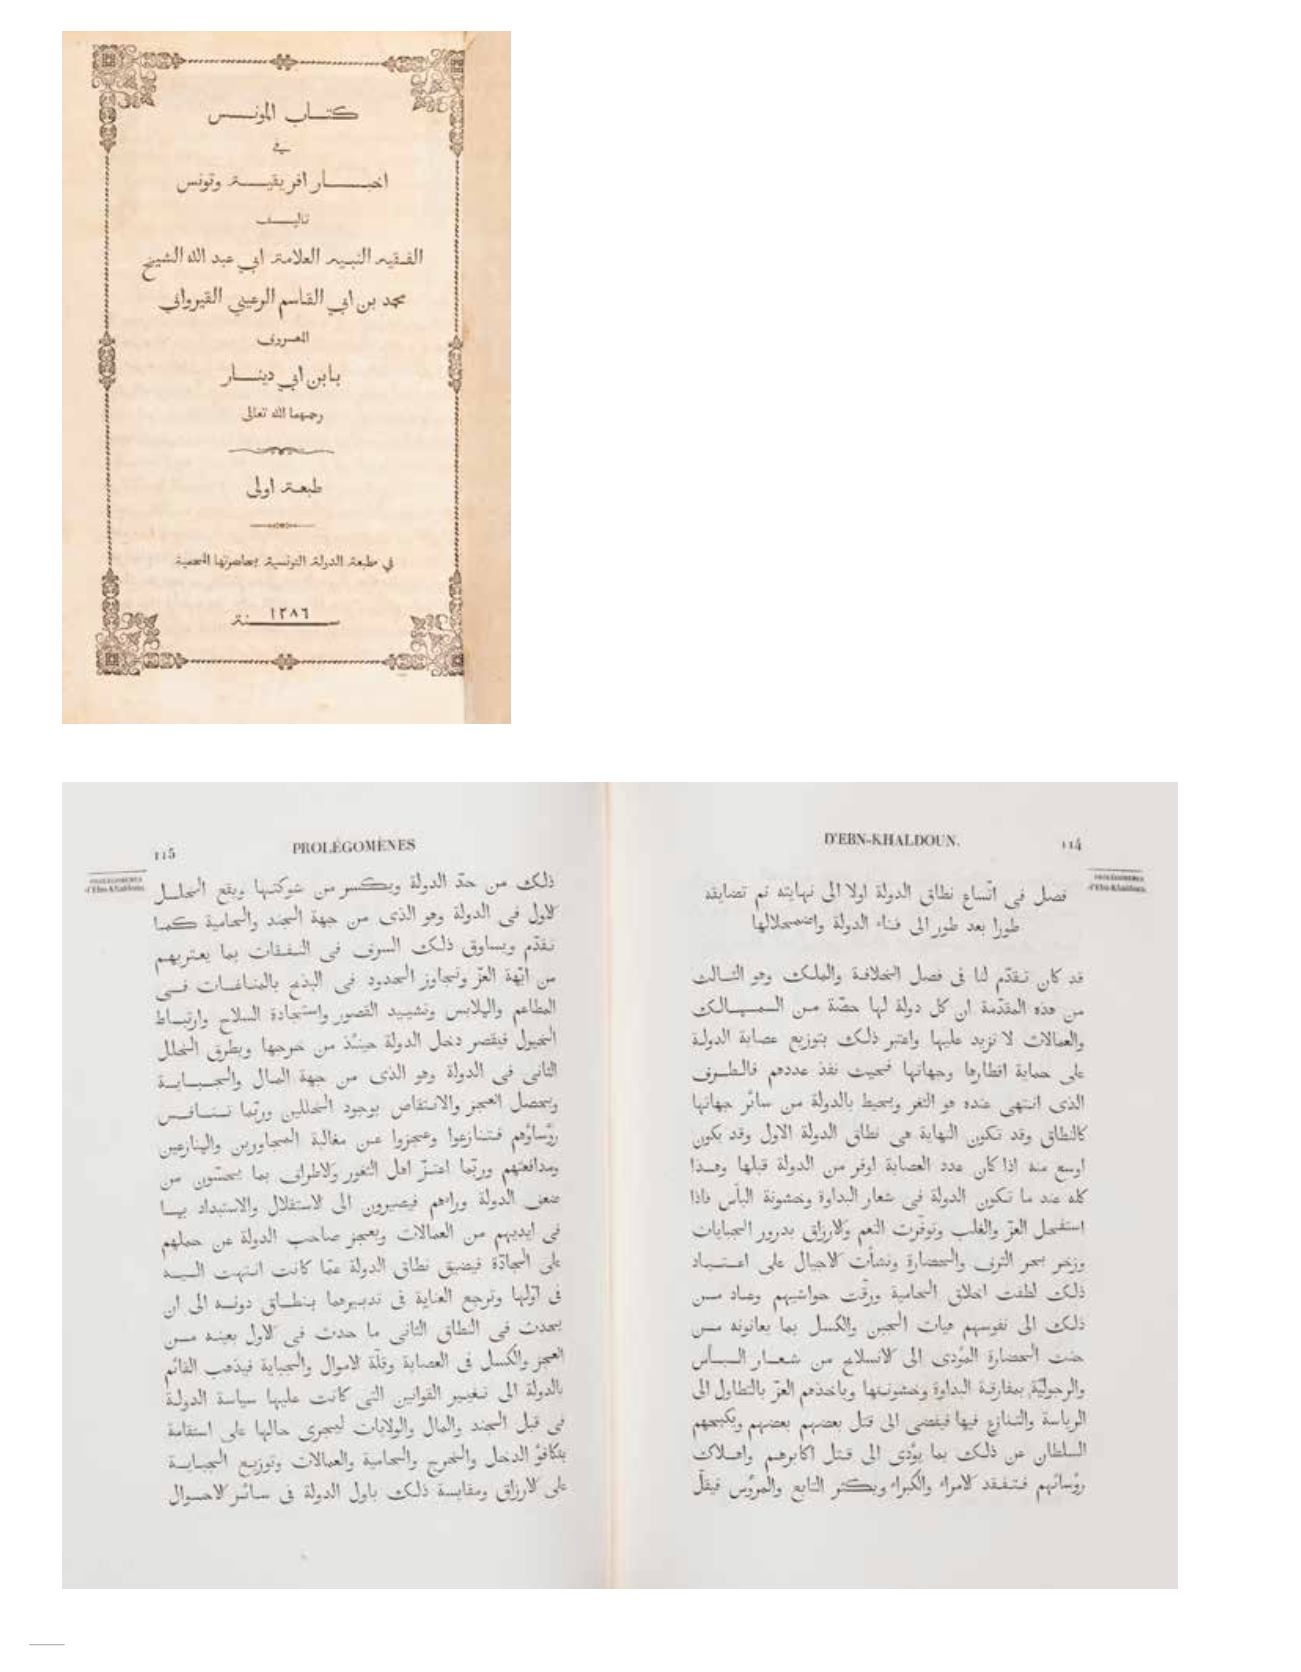 كتاب المونس
في
اخبار افريقية وتونس
تاليف
الفقيه النبيه العلامة ابي عبد الله الشيخ
محمد بن ابي القاسم الرعيني القيرواني
المعروف
بابن ابي دينار
رحمهما الله تعالى
طبعة اولى
في طبعة الدولة التونسية بحاضرتها المحمية
سنة ١٢٨٦
D'EBN-KHALDOUN.
114
PROLÉGOMÈNES
d'Ebn-Khaldoun.
فصل فى اتّساع نطاق الدولة اولا الى نهايته ثم تضايقه
طورا بعد طور الى فناء الدولة واضمحلالها
قد كان تقدّم لنا فى فصل الخلافة والملك وهو الثالث
من هذه المقدّمة ان كل دولة لها حصّة من الممالك
والعمالات لا تزيد عليها واعتبر ذلك بتوزيع عصابة الدولة
على حماية اقطارها وجهاتها فحيث نفذ عددهم فالطرف
الذى انتهى عنده هو الثغر ويحيط بالدولة من سائر جهاتها
كالنطاق وقد تكون النهاية هى نطاق الدولة الاول وقد يكون
اوسع منه اذا كان عدد العصابة اوفر من الدولة قبلها وهذا
كله عند ما تكون الدولة فى شعار البداوة وخشونة البأس فاذا
استفحل العزّ والغلب وتوفّرت النعم والارزاق بدرور الجبايات
وزخر بحر الترف والحضارة ونشأت الاجيال على اعتياد
ذلك لطفت اخلاق الحامية ورقّت حواشيهم وعاد من
ذلك الى نفوسهم هيات الجبن والكسل بما يعانونه من
خنث الحضارة المؤدى الى الانسلاخ من شعار البأس
والرجوليّة بمفارقة البداوة وخشونتها وباخذهم العزّ بالتطاول الى
الرياسة والتنازع فيها فيفضى الى قتل بعضهم بعضهم ويكبحهم
السلطان عن ذلك بما يؤدى الى قتل اكابرهم واهلاك
رؤسائهم فتفقد الامراء والكبراء ويكثر التابع والمرؤس فيقلّ
115
PROLÉGOMÈNES
PROLÉGOMÈNES
d'Ebn-Khaldoun.
ذلك من حدّ الدولة ويكسر من شوكتها ويقع الخلل
الاول فى الدولة وهو الذى من جهة الجند والحامية كما
تقدّم ويساوق ذلك السرف فى النفقات بما يعتريهم
من ابّهة العزّ وتجاوز الحدود فى البذخ بالمناغات فى
المطاعم والملابس وتشييد القصور واستجادة السلاح وارتباط
الخيول فيقصر دخل الدولة حينئذ من خرجها ويطرق الخلل
الثانى فى الدولة وهو الذى من جهة المال والجباية
ويحصل العجز والانتقاص بوجود الخللين وربّما تنافس
رؤساؤهم فتنازعوا وعجزوا عن مغالبة المجاورين والمنازعين
ومدافعتهم وربّما اعتزّ اهل الثغور والاطراف بما يحسّون من
ضعف الدولة وراءهم فيصيرون الى الاستقلال والاستبداد بما
فى ايديهم من العمالات ويعجز صاحب الدولة عن حملهم
على الجادّة فيضيق نطاق الدولة عمّا كانت انتهت اليه
فى اوّلها وترجع العناية فى تدبيرها بنطاق دونه الى ان
يحدث فى النطاق الثانى ما حدث فى الاول بعينه من
العجز والكسل فى العصابة وقلّة الاموال والجباية فيذهب القائم
بالدولة الى تغيير القوانين التى كانت عليها سياسة الدولة
فى قبل الجند والمال والولايات ليجرى حالها على استقامة
بتكافؤ الدخل والخرج والحامية والعمالات وتوزيع الجباية
على الارزاق ومقايسة ذلك باول الدولة فى سائر الاحوال